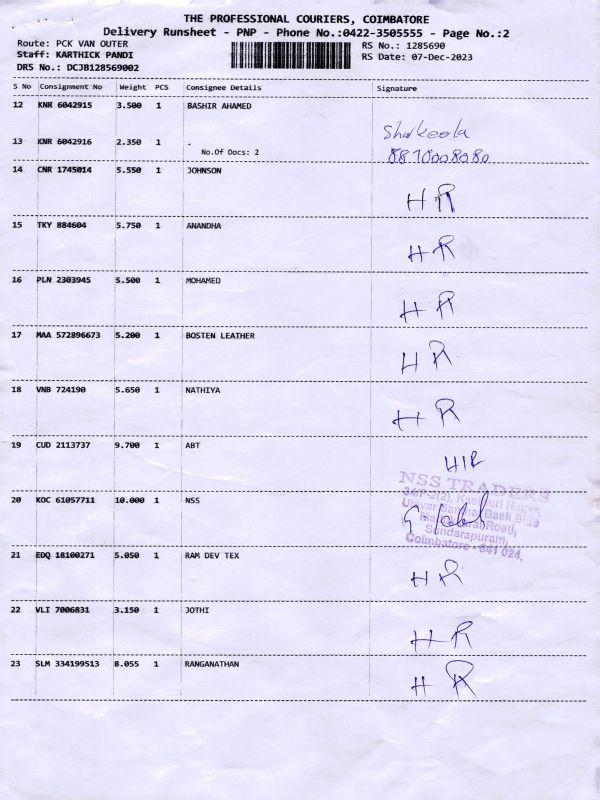 THE PROFESSIONAL COURIERS, COIMBATORE
Delivery Runsheet - PNP - Phone No.:0422-3505555 - Page No.:2
Route: PCK VAN OUTER RS No.: 1285690
Staff: KARTHICK PANDI RS Date: 07-Dec-2023
DRS No.: DCJB128569002
S No Consignment No Weight PCS Consignee Details Signature
12 KNR 6042915 3.500 1 BASHIR AHAMED
13 KNR 6042916 2.350 1 .
No.Of Docs: 2
8870008080
14 CNR 1745014 5.550 1 JOHNSON
H R
15 TKY 884604 5.750 1 ANANDHA
H R
16 PLN 2303945 5.500 1 MOHAMED
H R
17 MAA 572896673 5.200 1 BOSTEN LEATHER
H R
18 VNB 724190 5.650 1 NATHIYA
H R
19 CUD 2113737 9.700 1 ABT
HR
NSS TRADERS
20 KOC 61057711 10.000 1 NSS
Sundarapuram,
Coimbatore - 641 024.
21 EDQ 18100271 5.050 1 RAM DEV TEX
H R
22 VLI 7006831 3.150 1 JOTHI
H R
23 SLM 334199513 8.055 1 RANGANATHAN
H R